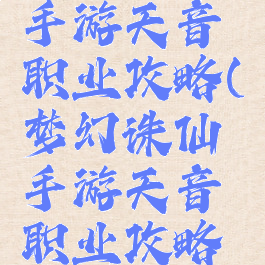 手游天音
职业攻略(
梦幻诛仙
手游天音
职业攻略